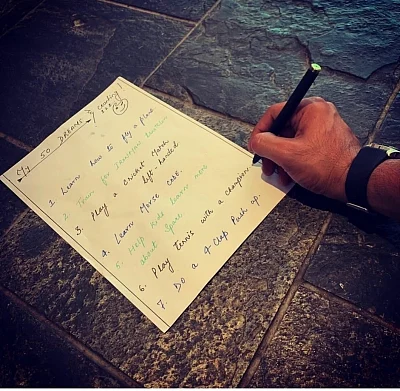 My 50 DREAMS & counting!
1. Learn how to fly a Plane
2. Train for Ironman triathlon
3. Play a Cricket Match
left-handed
4. Learn Morse Code.
5. Help Kids learn
about Space.
6. Play Tennis with a champion
7. Do a 4 Clap Push up.